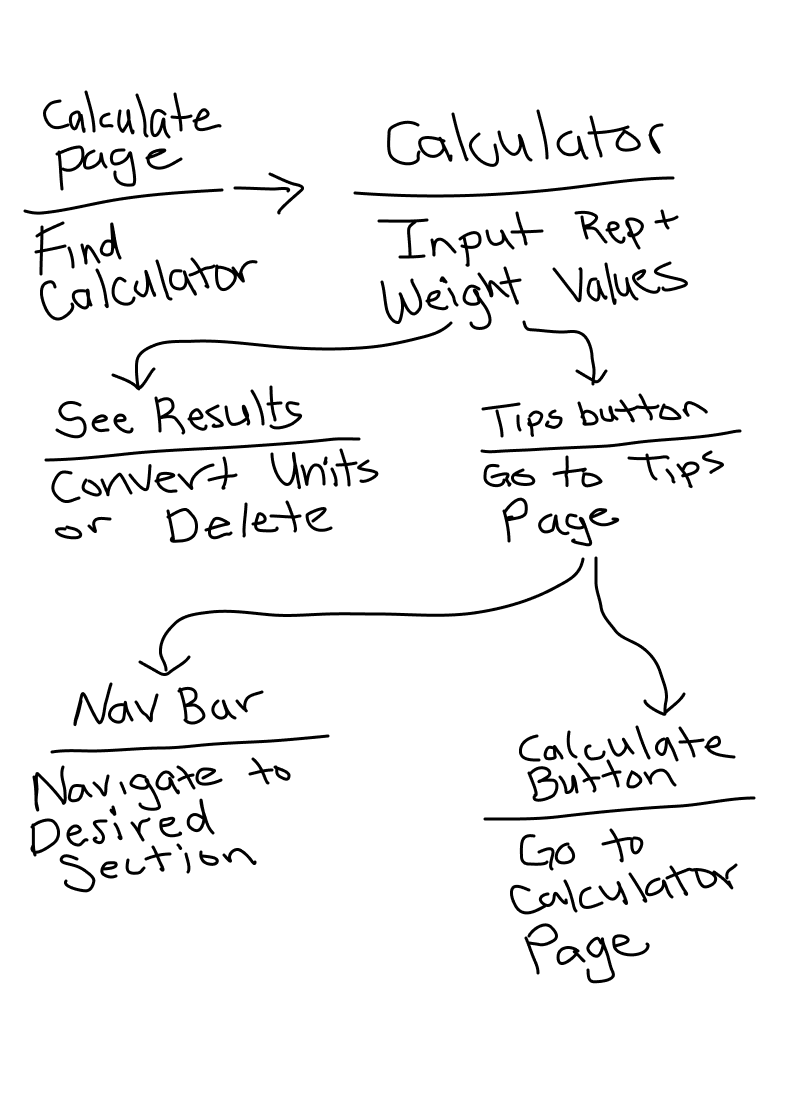 Calculate
Page
Find
Calculator
Calculator
Input Rep +
Weight Values
See Results
Convert Units
or Delete
Tips button
Go to Tips
Page
Nav Bar
Navigate to
Desired
Section
Calculate
Button
Go to
Calculator
Page